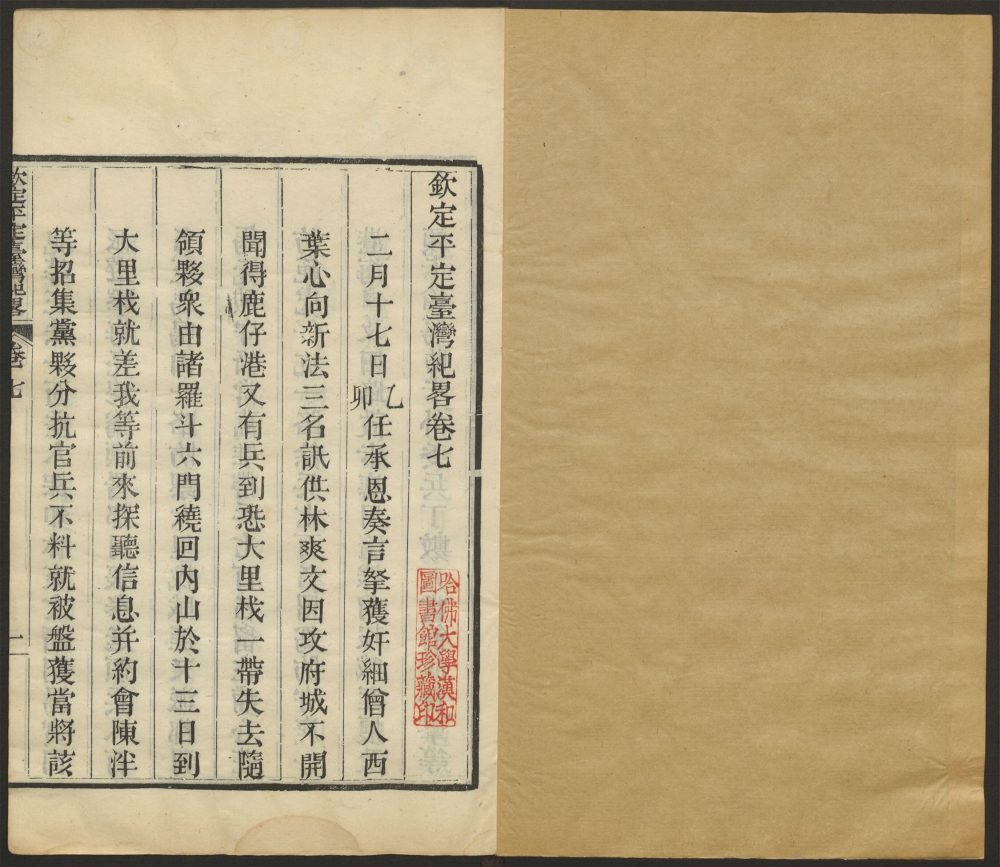 欽定平定臺灣紀畧卷七
二月十七日乙卯任承恩奏言拏獲奸細僧人西
葉心向新法三名訊供林爽文因攻府城不開
聞得鹿仔港又有兵到恐大里杙一帶失去隨
領夥衆由諸羅斗六門繞回內山於十三日到
大里杙就差我等前來探聽信息并約會陳泮
等招集黨夥分抗官兵不料就被盤獲當將該
欽定平定臺灣紀畧
卷七
一
哈佛大學漢和
圖書館珍藏印